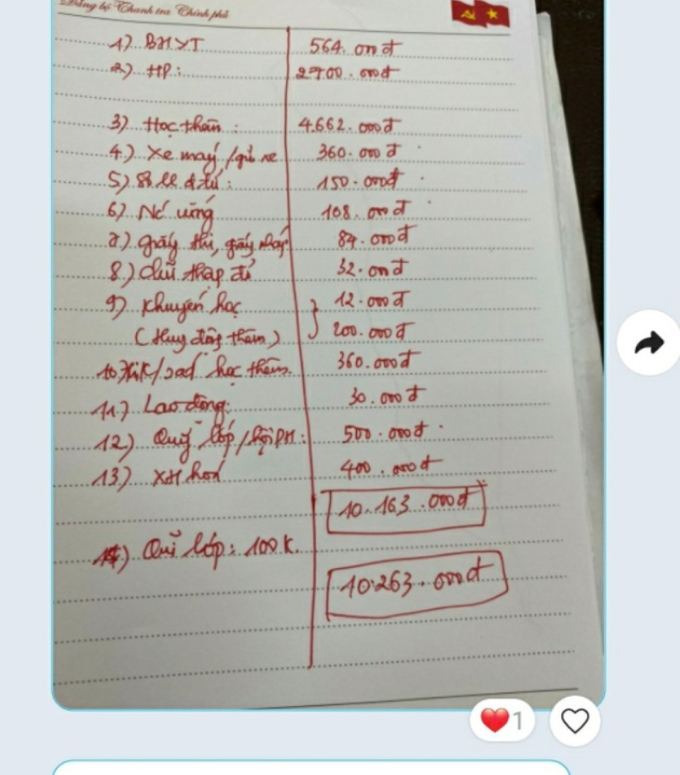 Đảng bộ Thanh tra Chính phủ
1) BHYT 564.000đ
2) HP: 2700.000đ
3) Học thêm: 4.662.000đ
4) Xe máy/gửi xe 360.000đ
5) đ.tử: 150.000đ
6) Nc uống 108.000đ
7) giấy thi, giấy nháp 84.000đ
8) chữ thập đỏ 32.000đ
9) Khuyến học 12.000đ
(Huy động thêm) 200.000đ
10) học thêm 360.000đ
11) Lao động: 30.000đ
12) Quỹ lớp/hội PH: 500.000đ
13) XH hoá 400.000đ
10.163.000đ
14) Quĩ lớp: 100K.
10.263.000đ
1